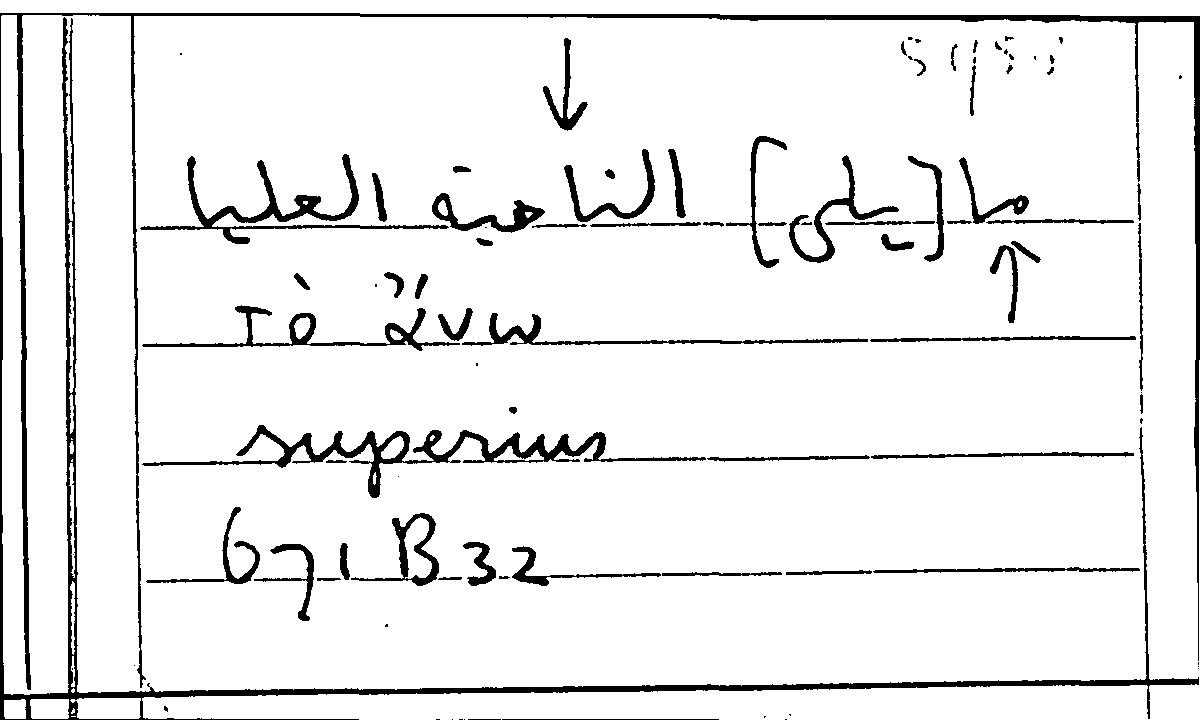 ما [يلى] الناحية العليا
τὸ ἄνω
superius
671 B 32